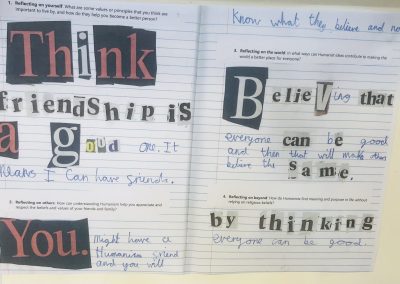 1. Reflecting on yourself What are some values or principles that you think are
important to live by, and how do they help you become a better person?
Think
friendship is
a good one. It
Means I Can have friends.
2. Reflecting on others: How can understanding Humanism help you appreciate and
respect the beliefs and values of your friends and family?
You. Might have a
Humanism friend
and you will
Know what they believe and no
3. Reflecting on the world: In what ways can Humanist ideas contribute to making the
world a better place for everyone?
Believing that
everyone can be good
and then that will make them
believe the same.
4. Reflecting on beyond: How do Humanists find meaning and purpose in life without
relying on religious beliefs?
by thinking
everyone can be good.